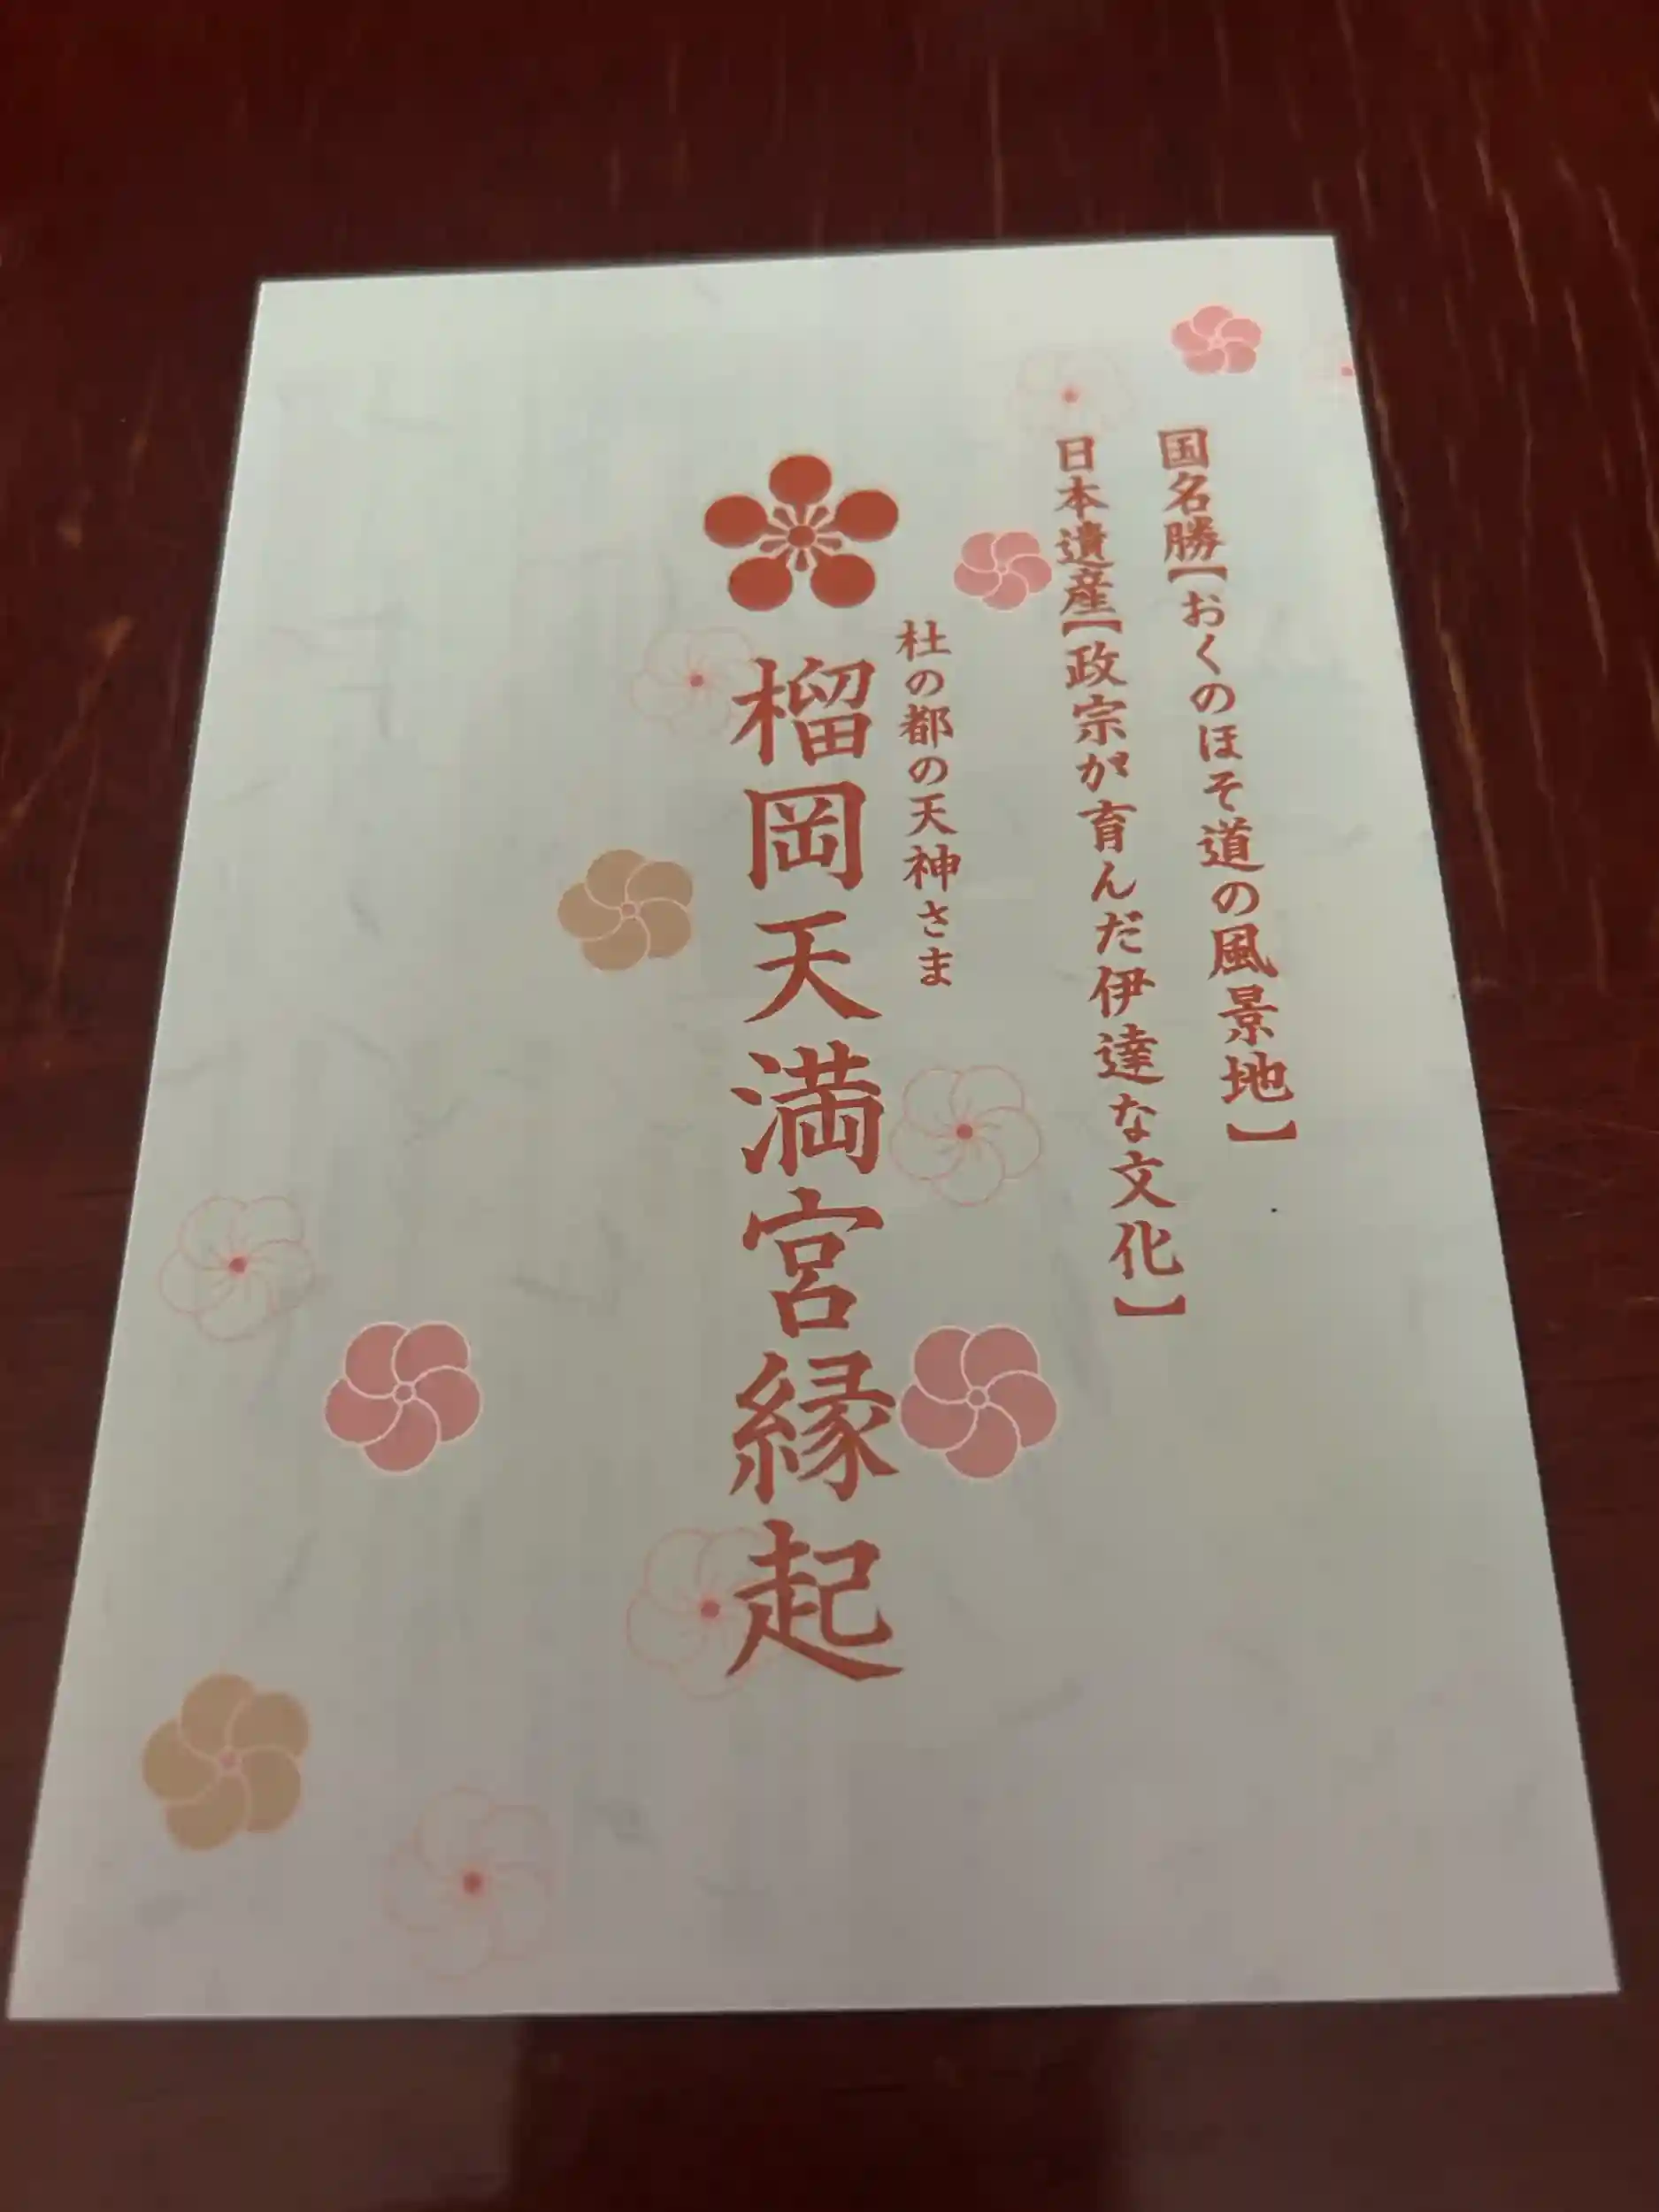 国名勝【おくのほそ道の風景地】
日本遺産【政宗が育んだ伊達な文化】
杜の都の天神さま
榴岡天満宮縁起